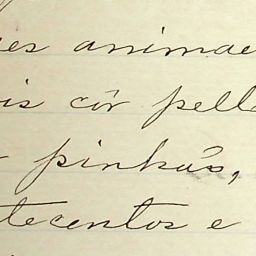 es animae
is côr pello
pinhás,
tecentos e